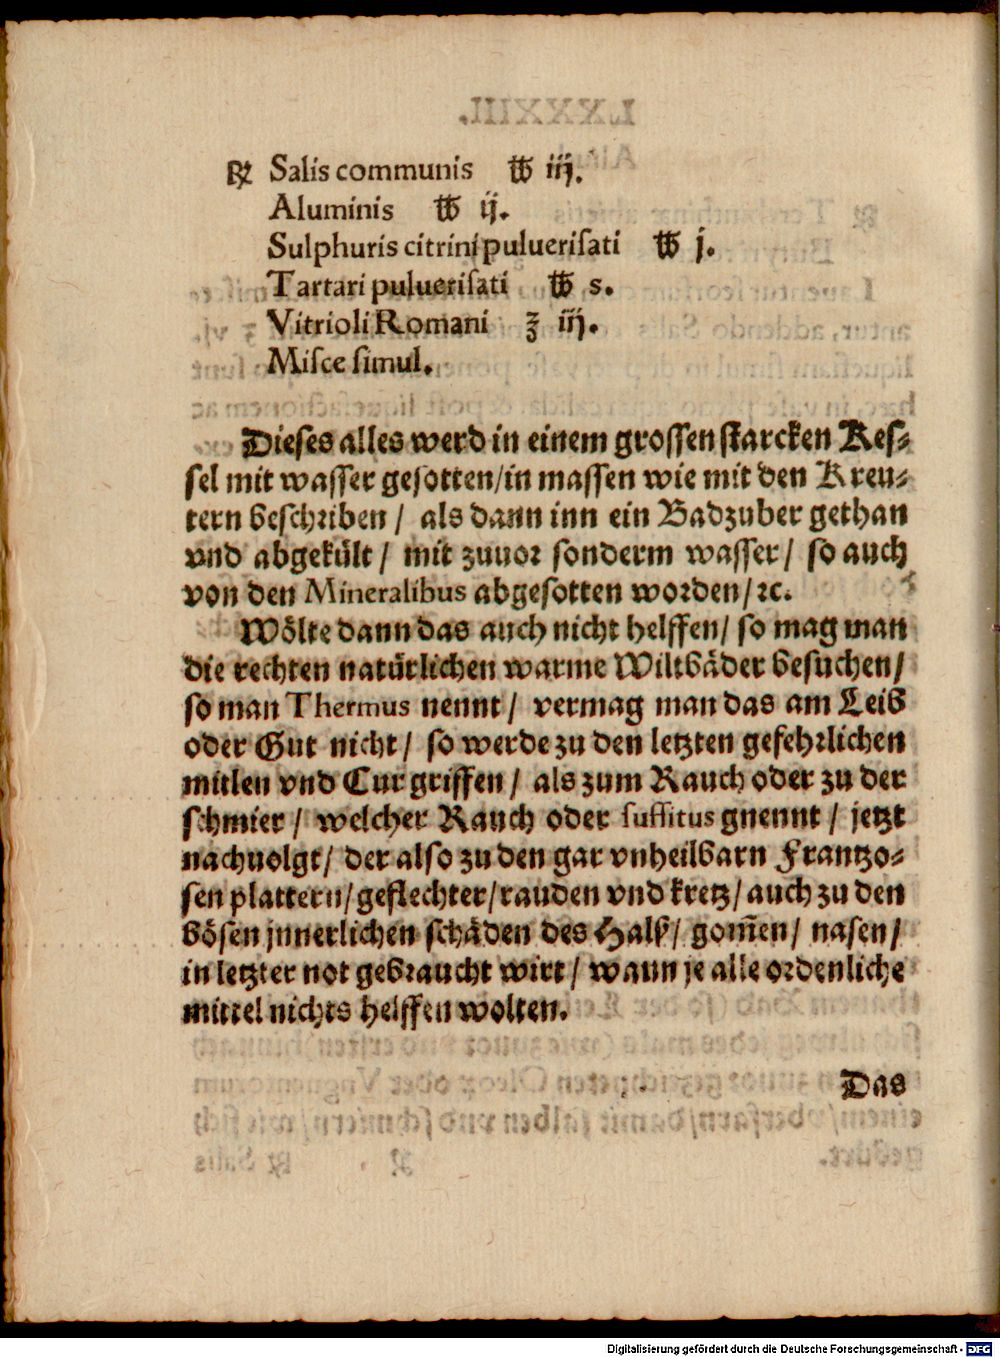 ℞ Salis communis ℔ iij.
Aluminis ℔ ij.
Sulphuris citrini pulueriſati ℔ j.
Tartari pulueriſati ℔ s.
Vitrioli Romani ℥ iij.
Miſce ſimul.
Dieſes alles werd in einem groſſen ſtarcken Keſ⸗
ſel mit waſſer geſotten/in maſſen wie mit den Kreu⸗
tern beſchriben / als dann inn ein Badzuber gethan
vnd abgekuͤlt / mit zuuor ſonderm waſſer / ſo auch
von den Mineralibus abgeſotten worden / ꝛc.
Woͤlte dann das auch nicht helffen / ſo mag man
die rechten natuͤrlichen warme Wiltbaͤder beſuchen /
ſo man Thermus nennt / vermag man das am Leib
oder Gut nicht / ſo werde zu den letzten gefehrlichen
mitlen vnd Cur griffen / als zum Rauch oder zu der
ſchmier / welcher Rauch oder ſuffitus gnennt / jetzt
nachuolgt / der alſo zu den gar vnheilbarn Frantzo⸗
ſen plattern / geflechter / rauden vnd kretz / auch zu den
boͤſen jnnerlichen ſchaͤden des Halß / gom̄en / naſen /
in letzter not gebraucht wirt / wann je alle ordenliche
mittel nichts helffen wolten.
Das
Digitalisierung gefördert durch die Deutsche Forschungsgemeinschaft - DFG